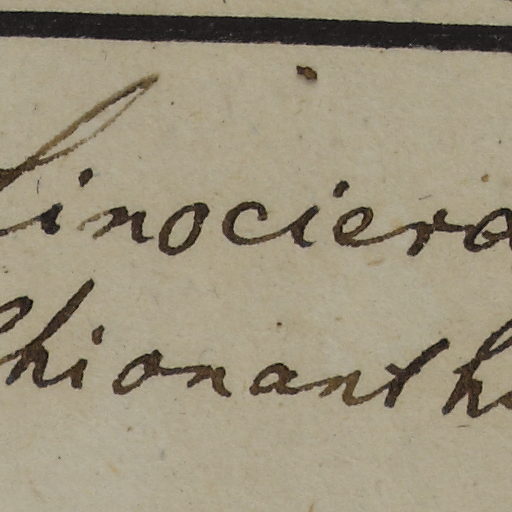 Linociera
Chionanth